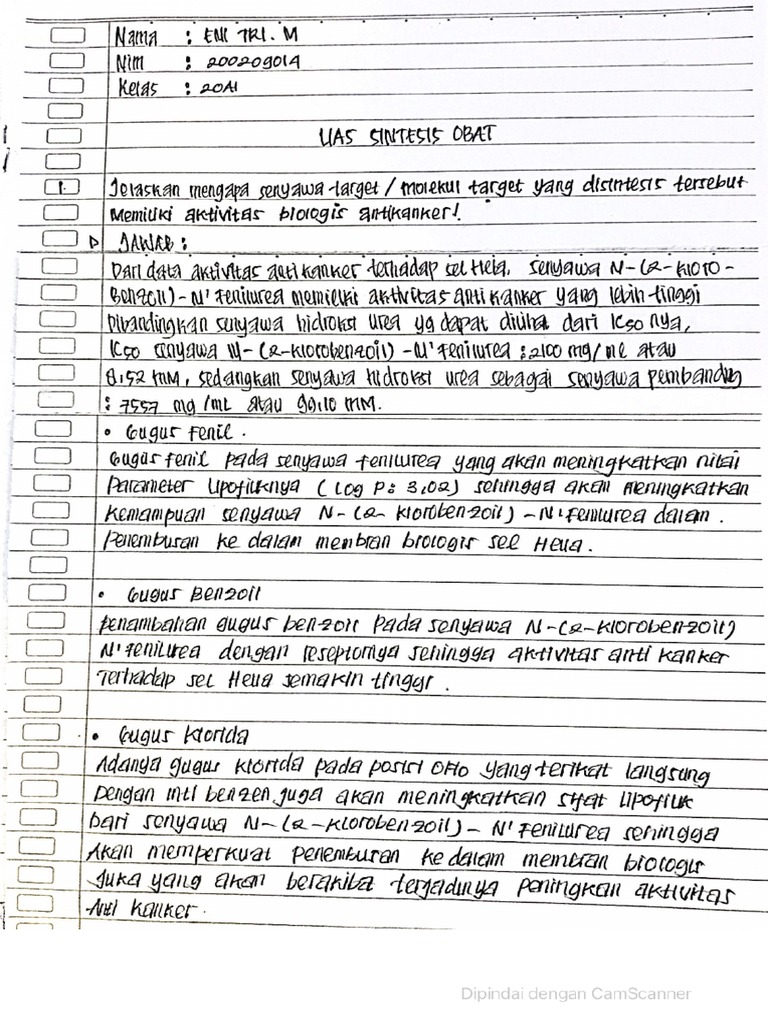 Nama : ENI TRI. M
Nim : 200209014
Kelas : 20A1
UAS SINTESIS OBAT
1. Jelaskan mengapa senyawa target / molekul target yang disintesis tersebut
Memiliki aktivitas biologis antikanker!
▷ JAWAB :
Dari data aktivitas anti kanker terhadap sel Hela, senyawa N-(2-kloro-
Benzoil)-N' Fenilurea memiliki aktivitas anti kanker yang lebih tinggi
Dibandingkan senyawa hidroksi urea yg dapat dilihat dari IC50 nya,
IC50 senyawa N-(2-klorobenzoil)-N' Fenilurea : 2100 mg/mL atau
8,52 mM, sedangkan senyawa hidroksi urea sebagai senyawa pembanding
: 7557 mg/mL atau 99,10 mM.
• Gugus Fenil.
Gugus fenil pada senyawa fenilurea yang akan meningkatkan nilai
Parameter lipofiliknya (log P: 3,02) sehingga akan meningkatkan
Kemampuan senyawa N-(2-klorobenzoil)-N' Fenilurea dalam.
Penembusan ke dalam membran biologis sel Hella.
• Gugus Benzoil
Penambahan gugus benzoil pada senyawa N-(2-klorobenzoil)
N' Fenilurea dengan reseptornya sehingga aktivitas anti kanker
Terhadap sel Hella semakin tinggi.
• Gugus Klorida
Adanya gugus klorida pada posisi Orto yang terikat langsung
Dengan inti benzen juga akan meningkatkan sifat lipofilik
Dari senyawa N-(2-klorobenzoil)-N' Fenilurea sehingga
Akan memperkuat penembusan ke dalam membran biologis
Juka yang akan berakiba terjadinya peningkan aktivitas
Anti kanker.
Dipindai dengan CamScanner